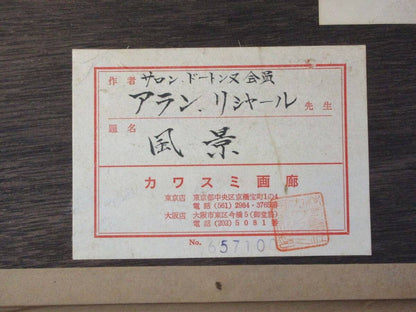 作者 サロン.ドートンヌ会員
アラン.リシャール 先生
題名
風景
カワスミ画廊
東京店 東京都中央区京橋宝町1の4
電話 (561) 2964・3765番
大阪店 大阪市東区今橋5(御堂筋)
電話 (202) 5081番
No. 65710